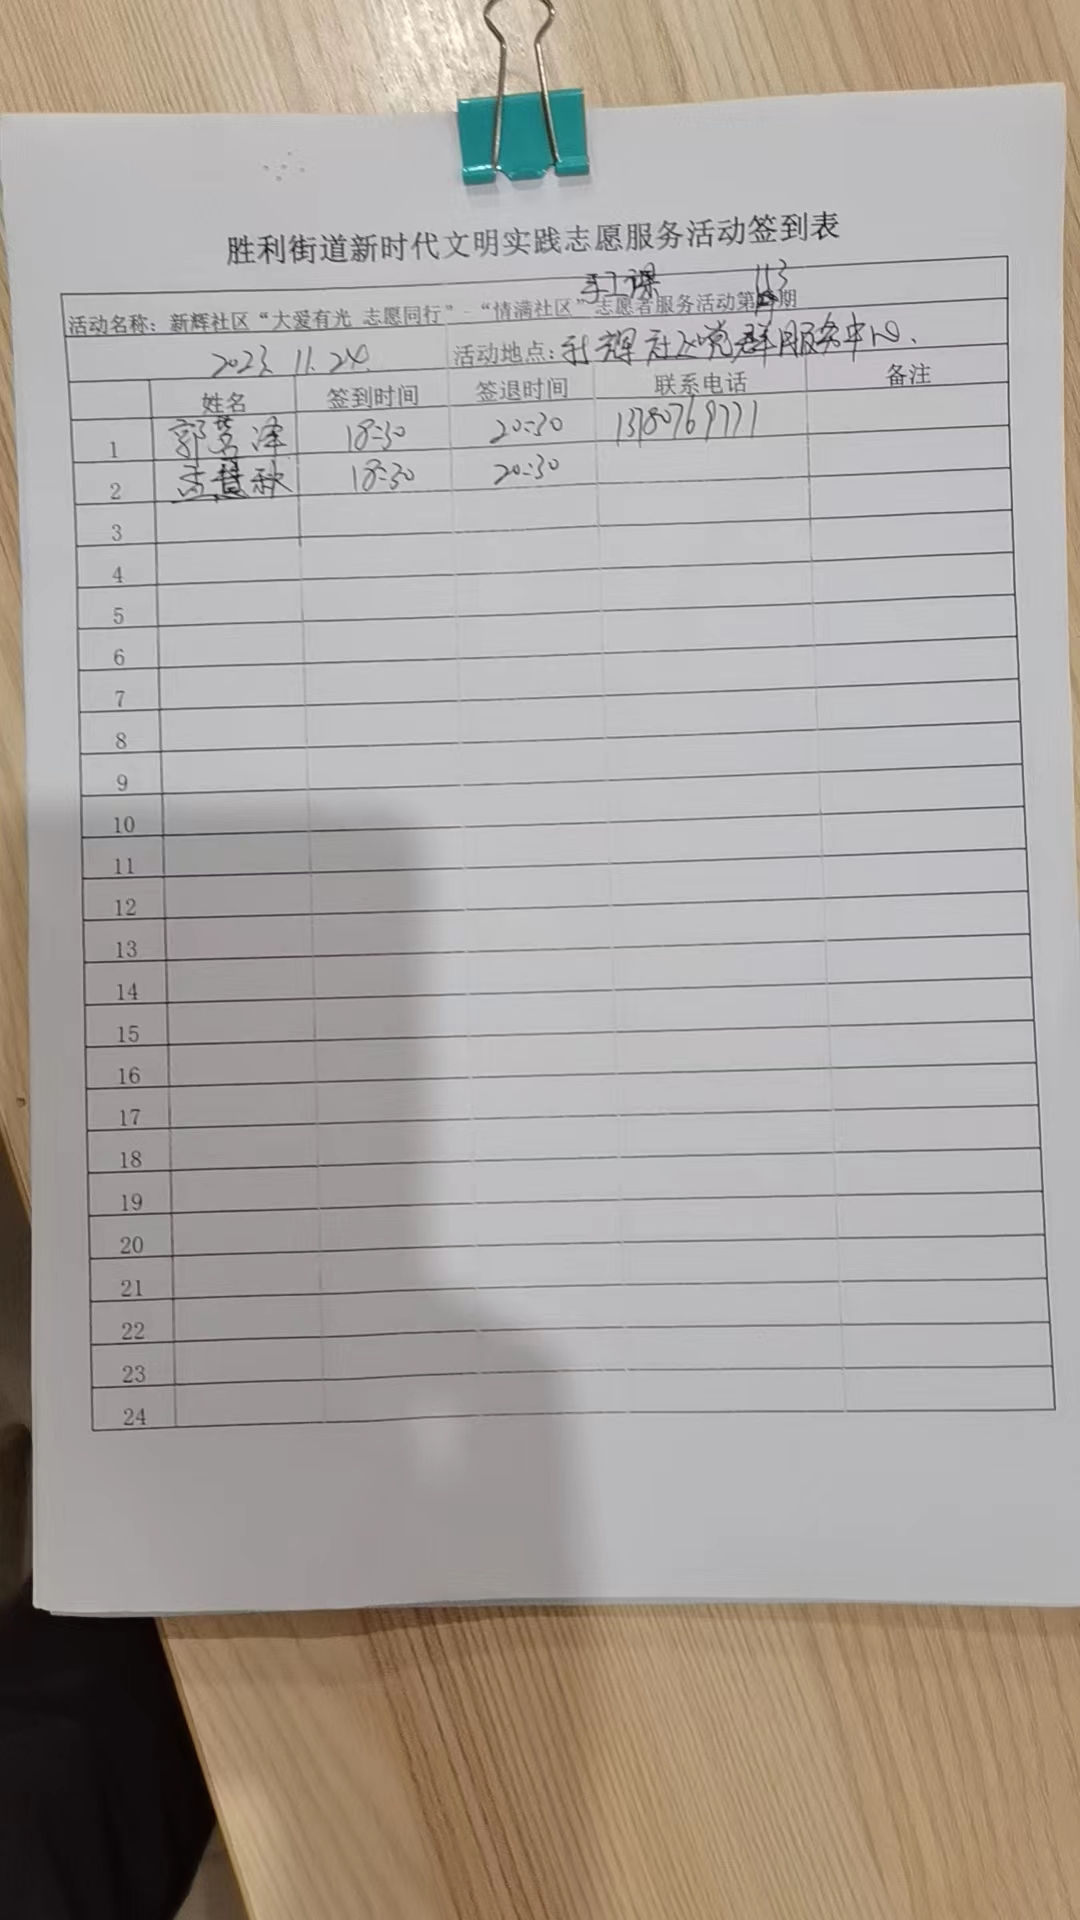 胜利街道新时代文明实践志愿服务活动签到表
手工课 113
活动名称：新辉社区“大爱有光 志愿同行”-“情满社区”志愿者服务活动第 期
2023. 11. 24. 活动地点：新辉社区党群服务中心.
姓名 签到时间 签退时间 联系电话 备注
1 郭 泽 18:30 20:30 13780769771
2 慧秋 18:30 20:30
3
4
5
6
7
8
9
10
11
12
13
14
15
16
17
18
19
20
21
22
23
24